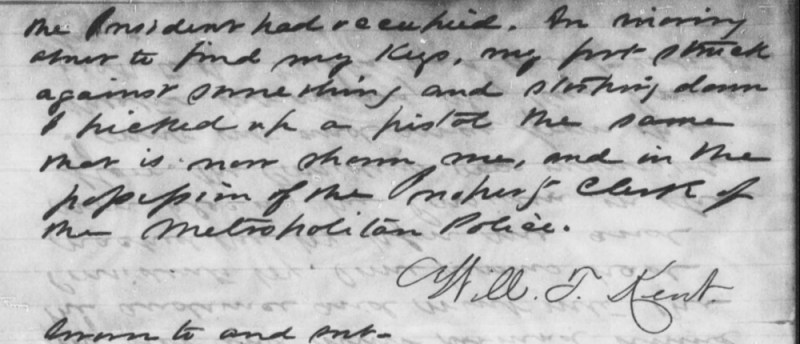 the President had occupied. In moving
about to find my keys, my foot struck
against something and stooping down
I picked up a pistol the same
that is now shown me, and in the
possession of the Property Clerk of
the Metropolitan Police.
Will. T. Kent.
Sworn to and sub-